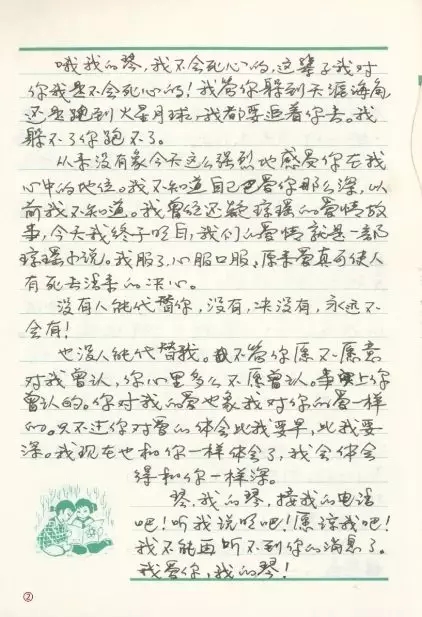 哦我的琴,我不会死心的,这辈子我对
你我是不会死心的!我管你躲到天涯海角,
还是跑到火星月球,我都要追着你去。我
躲不了你跑不了。
从来没有象今天这么强烈地感受你在我
心中的地位。我不知道自己已爱你那么深,以
前我不知道。我曾经还疑琼瑶的爱情故
事,今天我终于明白,我们的爱情就是一部
琼瑶小说。我服了,心服口服,原来爱真可使人
有死去活来的决心。
没有人能代替你,没有,决没有,永远不
会有!
也没人能代替我。不管你愿不愿意
对我曾认,你心里多么不愿曾认。事实上你
曾认的。你对我的爱也象我对你的爱一样
的。只不过你对爱的体会比我要早,比我要
深。我现在也和你一样体会了,我会体会
得和你一样深。
琴,我的琴,接我的电话
吧!听我说明吧!愿谅我吧!
我不能再听不到你的消息了。
我爱你,我的琴!
②